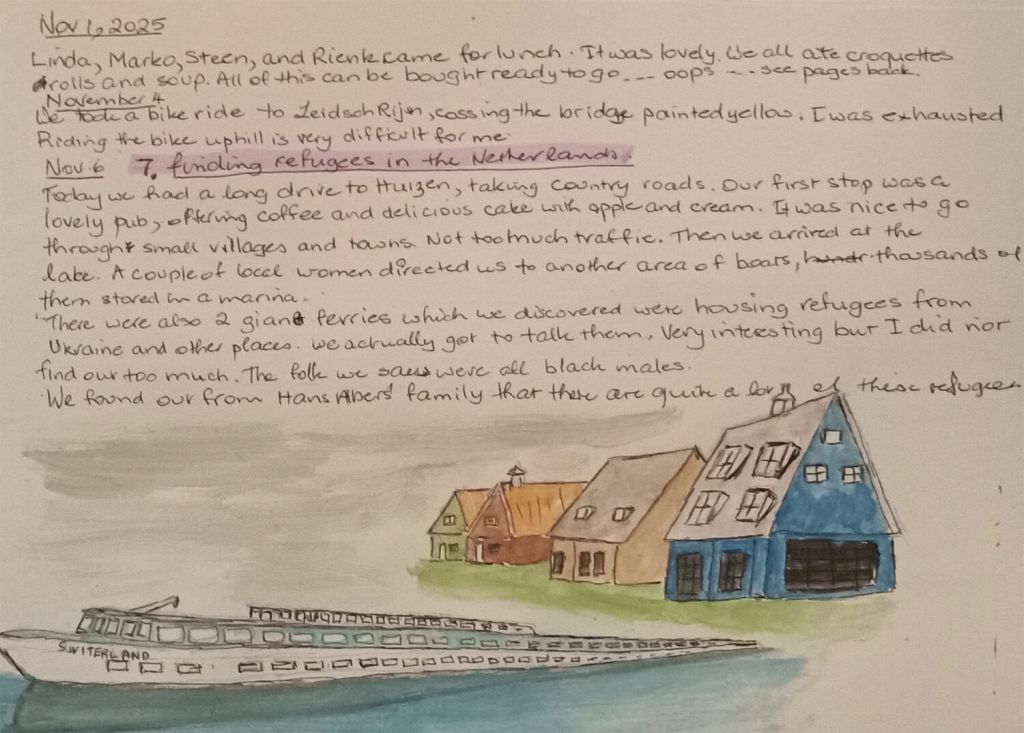 Nov 6, 2025
Linda, Marko, Steen, and Rienk came for lunch. It was lovely. We all ate croquettes
rolls and soup. All of this can be bought ready to go --- oops --- see pages back.
November 4
We took a bike ride to Leidsch Rijn, cossing the bridge painted yellow. I was exhausted
Riding the bike uphill is very difficult for me.
Nov. 6 7. finding refugees in the Netherlands.
Today we had a long drive to Huizen, taking country roads. Our first stop was a
lovely pub, offering coffee and delicious cake with apple and cream. It was nice to go
through small villages and towns. Not too much traffic. Then we arrived at the
lake. A couple of local women directed us to another area of boats, hundr thousands of
them stored in a marina.
There were also 2 giant ferries which we discovered were housing refugees from
Ukraine and other places. We actually got to talk them. Very interesting but I did not
find out too much. The folk we saw were all black males.
We found out from Hans Albers' family that there are quite a lot of these refugees
SWITERLAND